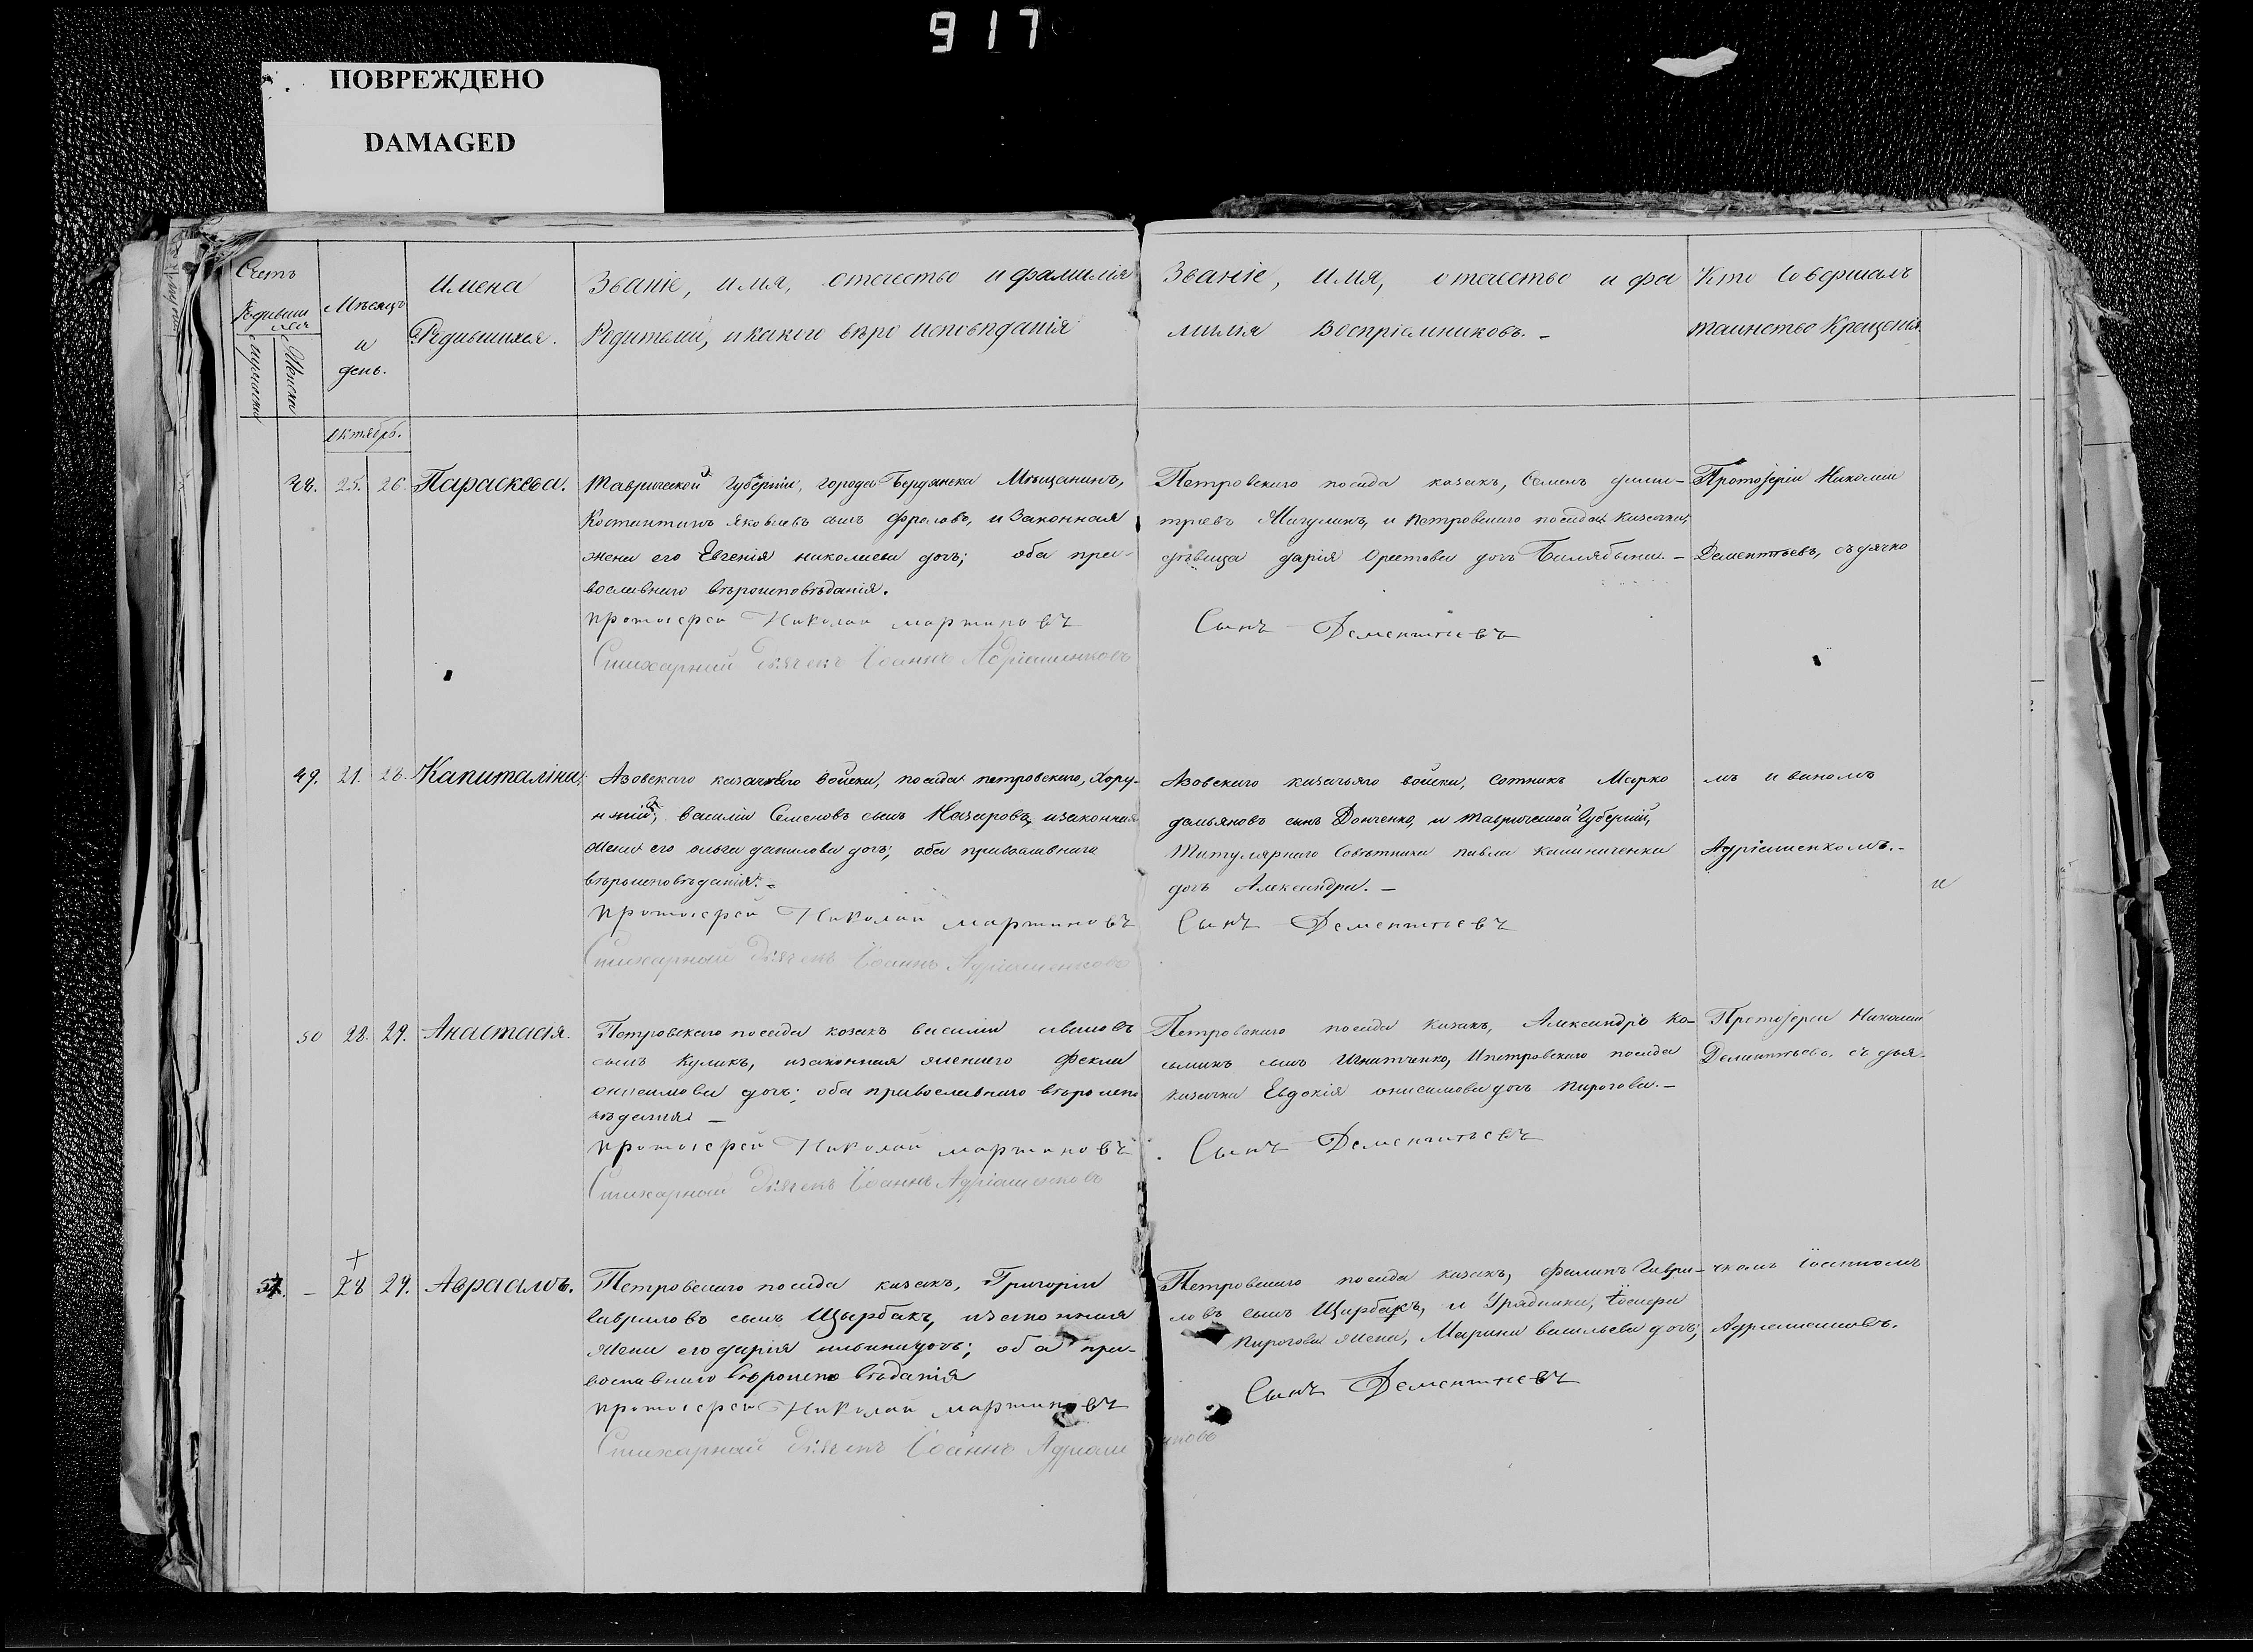 917
ПОВРЕЖДЕНО
DAMAGED
Счетъ
Родивших
ся
Мужеска
Женска
Мѣсяцъ
и
день.
Имена
Родившихся.
Званіе, имя, отечество и фамилія
Родителей, и какого вѣро исповѣданія
Званіе, имя, отечество и фа
милія Воспріемниковъ. -
Кто Совершалъ
таинство Крещенія
Октябрь.
48. 25. 26. Параскева.
Таврической Губерніи, города Бердянска Мѣщанинъ,
Костантинъ Яковлевъ сынъ Фроловъ, и Законная
жена его Евгенія николаева дочь; оба пра-
вославнаго вѣроисповѣданія.
протоіерей Николай мартиновъ
Стихарный Дьячекъ Іоаннъ Адріашенковъ
Петровскаго посада козакъ, Семенъ дими-
тріевъ Мигулинъ, и петровскаго посада козачка,
дѣвица дарія Орестова дочь Билябына. -
Сынъ Дементьевъ
Протоіерей Николай
Дементьевъ, съ дячко
49. 21. 28. Капиталіна.
Азовскаго казачьяго войска, посада петровскаго, Хору-
нжій, василій Семеновъ сынъ Назаровъ, и законная
жена его ольга данилова дочь; оба православнаго
вѣроисповѣданія. -
протоіерей Николай мартиновъ
Стихарный Дьячекъ Іоаннъ Адріашенковъ
Азовскаго казачьяго войска, сотникъ Марко
демьяновъ сынъ Донченко, и таврической Губерніи,
Титулярнаго Совѣтника павла калиниченка
дочь Александра. -
Сынъ Дементьевъ
мъ иваномъ
Адріашенкомъ. -
и
50 28. 29. Анастасія.
Петровскаго посада козакъ василій ивановъ
сынъ Куликъ, и законная жена его Фекла
онисимова дочь; оба православнаго вѣроиспо
вѣданія -
протоіерей Николай мартиновъ
Стихарный Дьячекъ Іоаннъ Адріашенковъ
Петровскаго посада козакъ, Александръ ко-
сынъ Игнатченко, и петровскаго посада
козачка Евдокія онисимова дочь пирогова. -
Сынъ Дементьевъ
Протоіерей Николай
Дементьевъ, съ дья-
- 28 29. Авраамъ.
Петровскаго посада козакъ, Григорій
Гавриловъ сынъ Щырбакъ, и законная
жена его дарія ильина дочь; оба пра-
вославнаго вѣроиспо вѣданія
протоіерей Николай мартиновъ
Стихарный Дьячекъ Іоаннъ Адріаш нковъ
Петровскаго посада козакъ, филипъ Гаври-
ловъ сынъ Щирбакъ, и Урядника, Іосифа
пирогова жена, Марина васильева дочь;
Сынъ Дементьевъ
чкомъ Іоанномъ
Адріашенковъ.